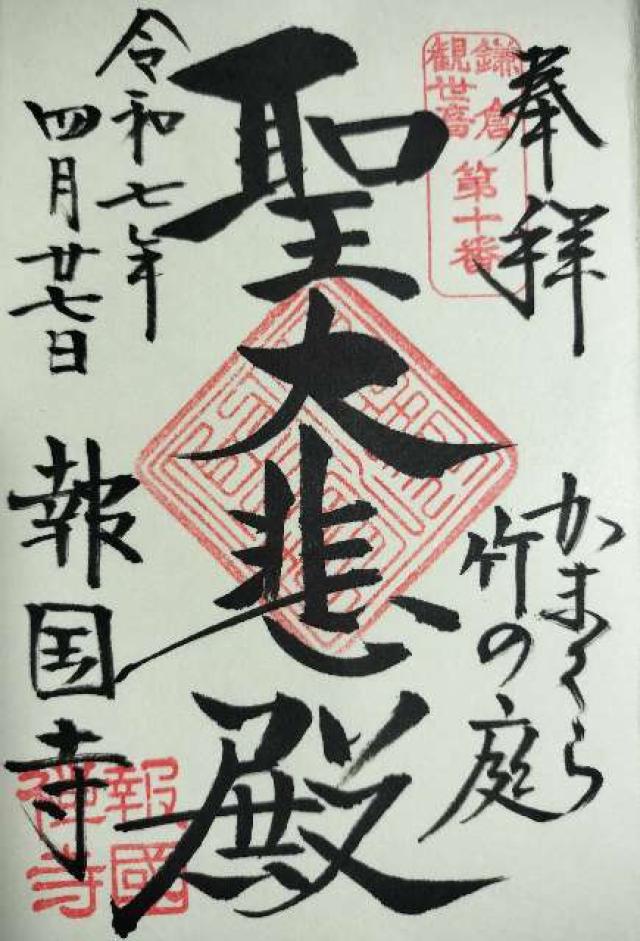 奉拝
鎌倉
観世音
第十番
かまくら
竹の庭
聖大悲殿
令和七年
四月廿七日
報国寺
報國
禅寺